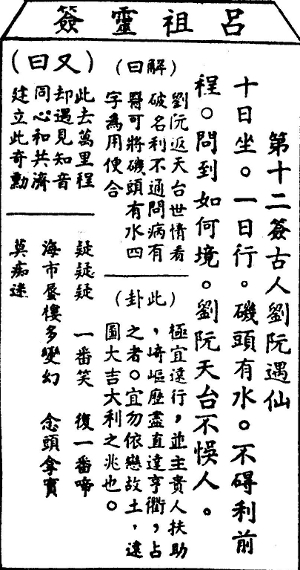 呂祖靈簽
第十二簽古人劉阮遇仙
十日坐。一日行。磯頭有水。不碍利前
程。問到如何境。劉阮天台不悞人。
(解曰)
劉阮返天台世情看
破名利不通問病有
醫可將磯頭有水四
字為用便合
(此卦)
極宜遠行，並主貴人扶助
，崎嶇歷盡直達亨衢，占
之者。宜勿依戀故土，遠
圖大吉大利之兆也。
(又曰)
此去萬里程
却遇見知音
同心和共濟
建立此奇勳
疑疑疑　一番笑　復一番啼
海市蜃樓多變幻　念頭拿實
莫痴迷